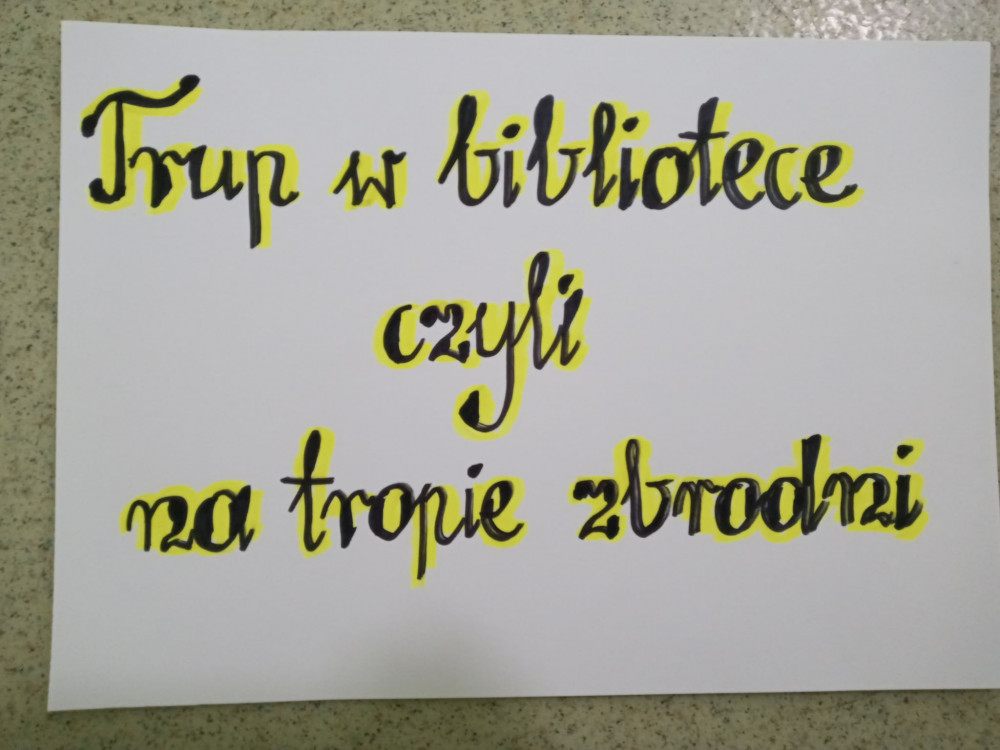 Trup w bibliotece
czyli
na tropie zbrodni